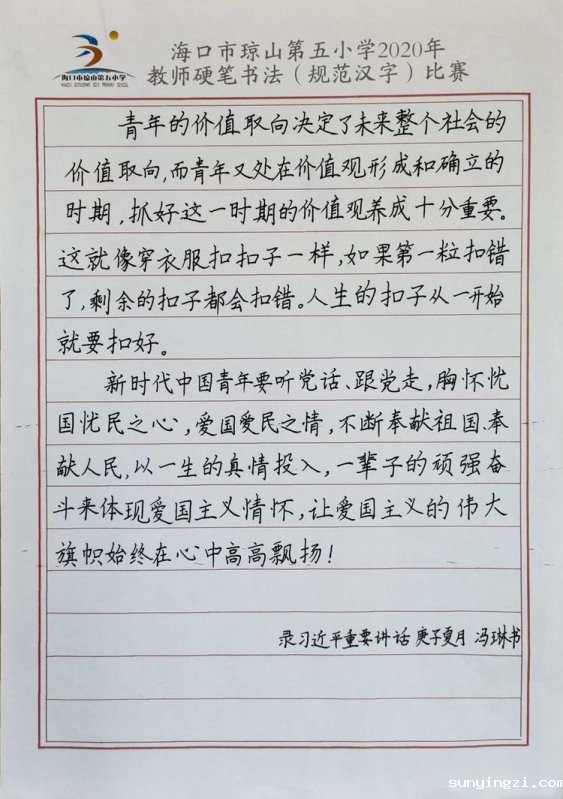 海口市琼山第五小学2020年
教师硬笔书法（规范汉字）比赛
海口市琼山第五小学
青年的价值取向决定了未来整个社会的
价值取向,而青年又处在价值观形成和确立的
时期，抓好这一时期的价值观养成十分重要。
这就像穿衣服扣扣子一样,如果第一粒扣错
了,剩余的扣子都会扣错。人生的扣子从一开始
就要扣好。
新时代中国青年要听党话、跟党走，胸怀忧
国忧民之心，爱国爱民之情，不断奉献祖国、奉
献人民,以一生的真情投入，一辈子的顽强奋
斗来体现爱国主义情怀,让爱国主义的伟大
旗帜始终在心中高高飘扬！
录习近平重要讲话 庚子夏月 冯琳书
sunyingzi.com